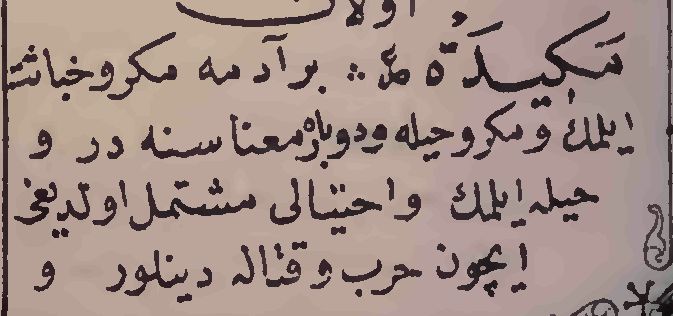 اولان
مَكِيدَةٌ ع ∴ بر آدمه مكر و خباثت
ايلمك و مكر و حيله و دوباره معناسنه در و
حيله ايلمك و احتيالى مشتمل اولديغى
ايچون حرب و قتاله دينلور و